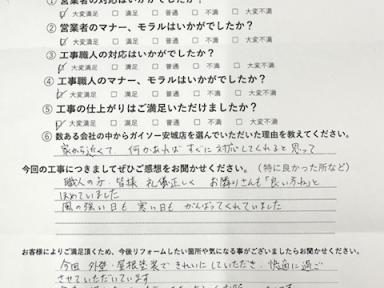 ① 営業者の対応はいかがでしたか？
☑ 大変満足 □ 満足 □ 普通 □ 不満 □ 大変不満
② 営業者のマナー、モラルはいかがでしたか？
☑ 大変満足 □ 満足 □ 普通 □ 不満 □ 大変不満
③ 工事職人の対応はいかがでしたか？
☑ 大変満足 □ 満足 □ 普通 □ 不満 □ 大変不満
④ 工事職人のマナー、モラルはいかがでしたか？
☑ 大変満足 □ 満足 □ 普通 □ 不満 □ 大変不満
⑤ 工事の仕上がりはご満足いただけましたか？
☑ 大変満足 □ 満足 □ 普通 □ 不満 □ 大変不満
⑥ 数ある会社の中からガイソー安城店を選んでいただいた理由を教えてください。
家から近くて、何かあればすぐに対応してくれると思って
今回の工事につきましてぜひご感想をお聞かせください。（特に良かった所など）
職人の方・皆様 礼儀正しく お隣りさんも「良い方ね」と
ほめていました
風の強い日も 寒い日も がんばってくれていました
お客様によりご満足頂くため、今後リフォームしたい箇所や気になる事がございましたらお聞かせください。
今回 外壁・屋根塗装で きれいにしていただき、快適に過ご
させていただいています